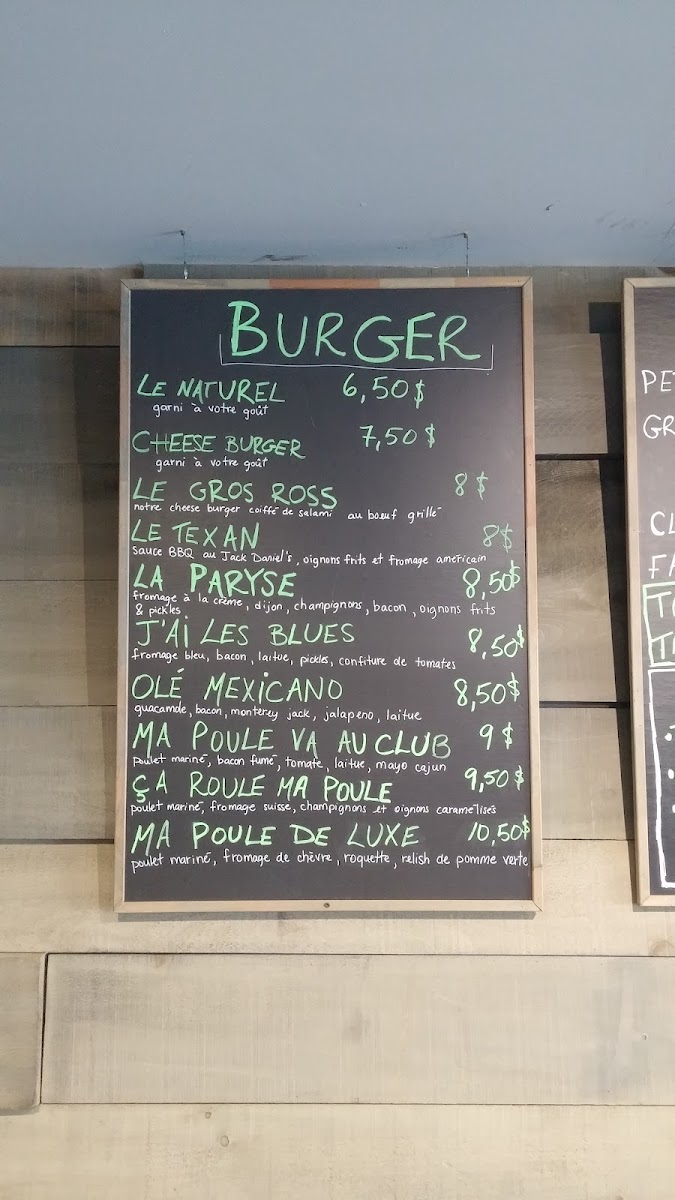 BURGER
LE NATUREL 6,50$
garni à votre goût
CHEESE BURGER 7,50$
garni à votre goût
LE GROS ROSS 8$
notre cheese burger coiffé de salami au bœuf grillé
LE TEXAN 8$
Sauce BBQ au Jack Daniel's, oignons frits et fromage américain
LA PARYSE 8,50$
fromage à la crème, dijon, champignons, bacon, oignons frits
& pickles
J'Ai LES BLUES 8,50$
fromage bleu, bacon, laitue, pickles, confiture de tomates
OLÉ MEXICANO 8,50$
guacamole, bacon, monterey jack, jalapeno, laitue
MA POULE VA AU CLUB 9$
poulet mariné, bacon fumé, tomate, laitue, mayo cajun
ÇA ROULE MA POULE 9,50$
poulet mariné, fromage suisse, champignons et oignons caramélisés
MA POULE DE LUXE 10,50$
poulet mariné, fromage de chèvre, roquette, relish de pomme verte
PE
GR
CL
FA